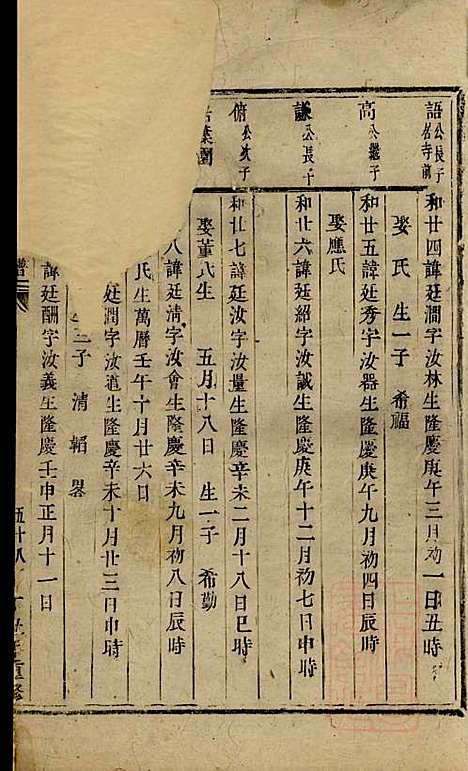 語公長子名寺前
和廿四諱廷澗字汝林生隆慶庚午三月初一日丑時
娶 氏 生一子 希福
高公繼子
和廿五諱廷秀字汝器生隆慶庚午九月初四日辰時
娶應氏
謙公長子
和廿六諱廷紹字汝誠生隆慶庚午十二月初七日申時
脩公次子
和廿七諱廷汝字汝量生隆慶辛未二月十八日巳時
娶董氏生 五月十八日 生一子 希勤
八諱廷淸字汝會生隆慶辛未九月初八日辰時
氏生萬曆壬午十月廿六日
廷潤字汝道生隆慶辛未十月廿三日申時
三子 清 韜
諱廷酬字汝義生隆慶壬申正月十一日
譜
五十八
重修